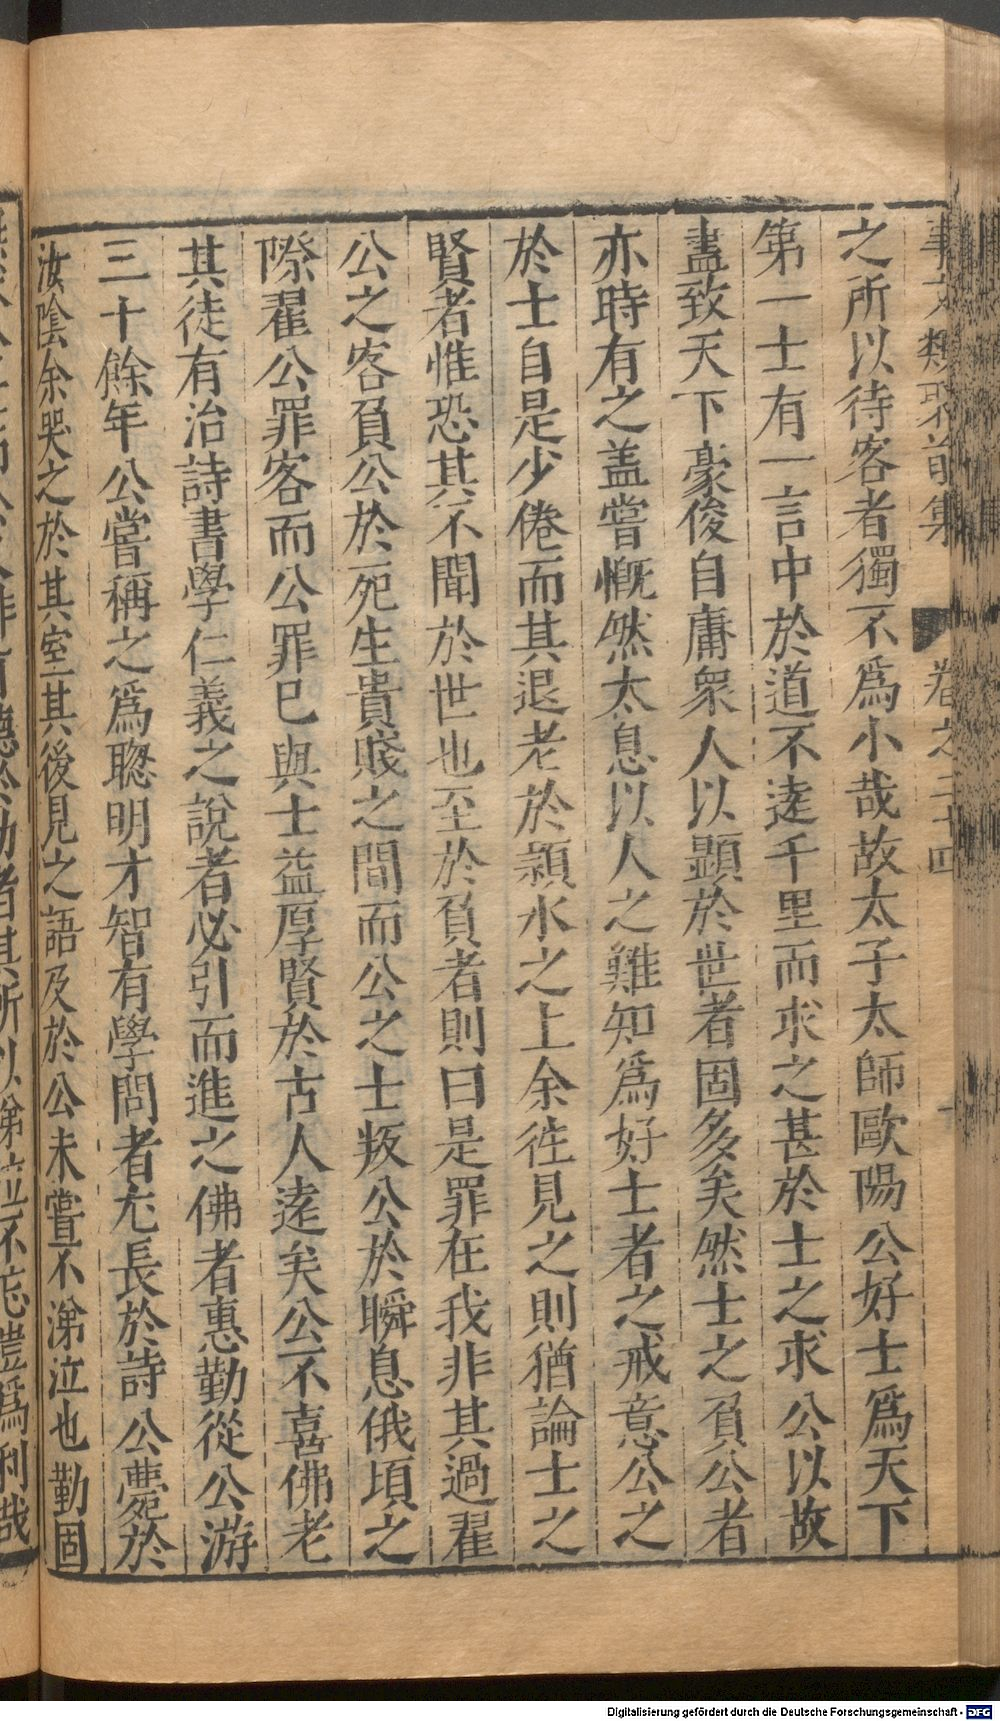 事文類聚前集 卷之三十四
之所以待客者獨不爲小哉故太子太師歐陽公好士爲天下
第一士有一言中於道不遠千里而求之甚於士之求公以故
盡致天下豪俊自庸衆人以顯於世者固多矣然士之負公者
亦時有之盖嘗慨然太息以人之難知爲好士者之戒意公之
於士自是少倦而其退老於潁水之上余徃見之則猶論士之
賢者惟恐其不聞於世也至於負者則曰是罪在我非其過翟
公之客負公於死生貴賤之間而公之士叛公於瞬息俄頃之
際翟公罪客而公罪已與士益厚賢於古人遠矣公不喜佛老
其徒有治詩書學仁義之說者必引而進之佛者惠勤從公游
三十餘年公嘗稱之爲聦明才智有學問者尢長於詩公薨於
汝陰余哭之於其室其後見之語及於公未嘗不涕泣也勤固
不忘豈爲利哉
Digitalisierung gefördert durch die Deutsche Forschungsgemeinschaft - DFG